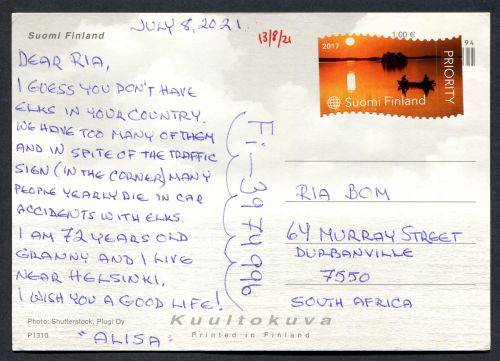 JULY 8, 2021
13/8/21
Suomi Finland
DEAR RIA,
I GUESS YOU DON'T HAVE
ELKS IN YOUR COUNTRY.
WE HAVE TOO MANY OF THEM
AND IN SPITE OF THE TRAFFIC
SIGN (IN THE CORNER) MANY
PEOPLE YEARLY DIE IN CAR
ACCIDENTS WITH ELKS.
I AM 72 YEARS OLD
GRANNY AND I LIVE
NEAR HELSINKI.
I WISH YOU A GOOD LIFE!
"ALISA"
Fi-3974996
2017
Suomi Finland
PRIORITY
1,00 €
94
RIA BOM
64 MURRAY STREET
DURBANVILLE
7550
SOUTH AFRICA
Photo: Shutterstock, Plugi Oy
P1310
Kuultokuva
Printed in Finland